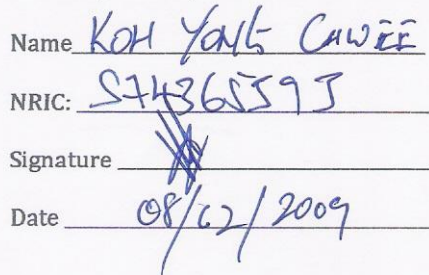 Name KOH YONG CHWEE
NRIC: S7436559J
Signature
Date 08/12/2009